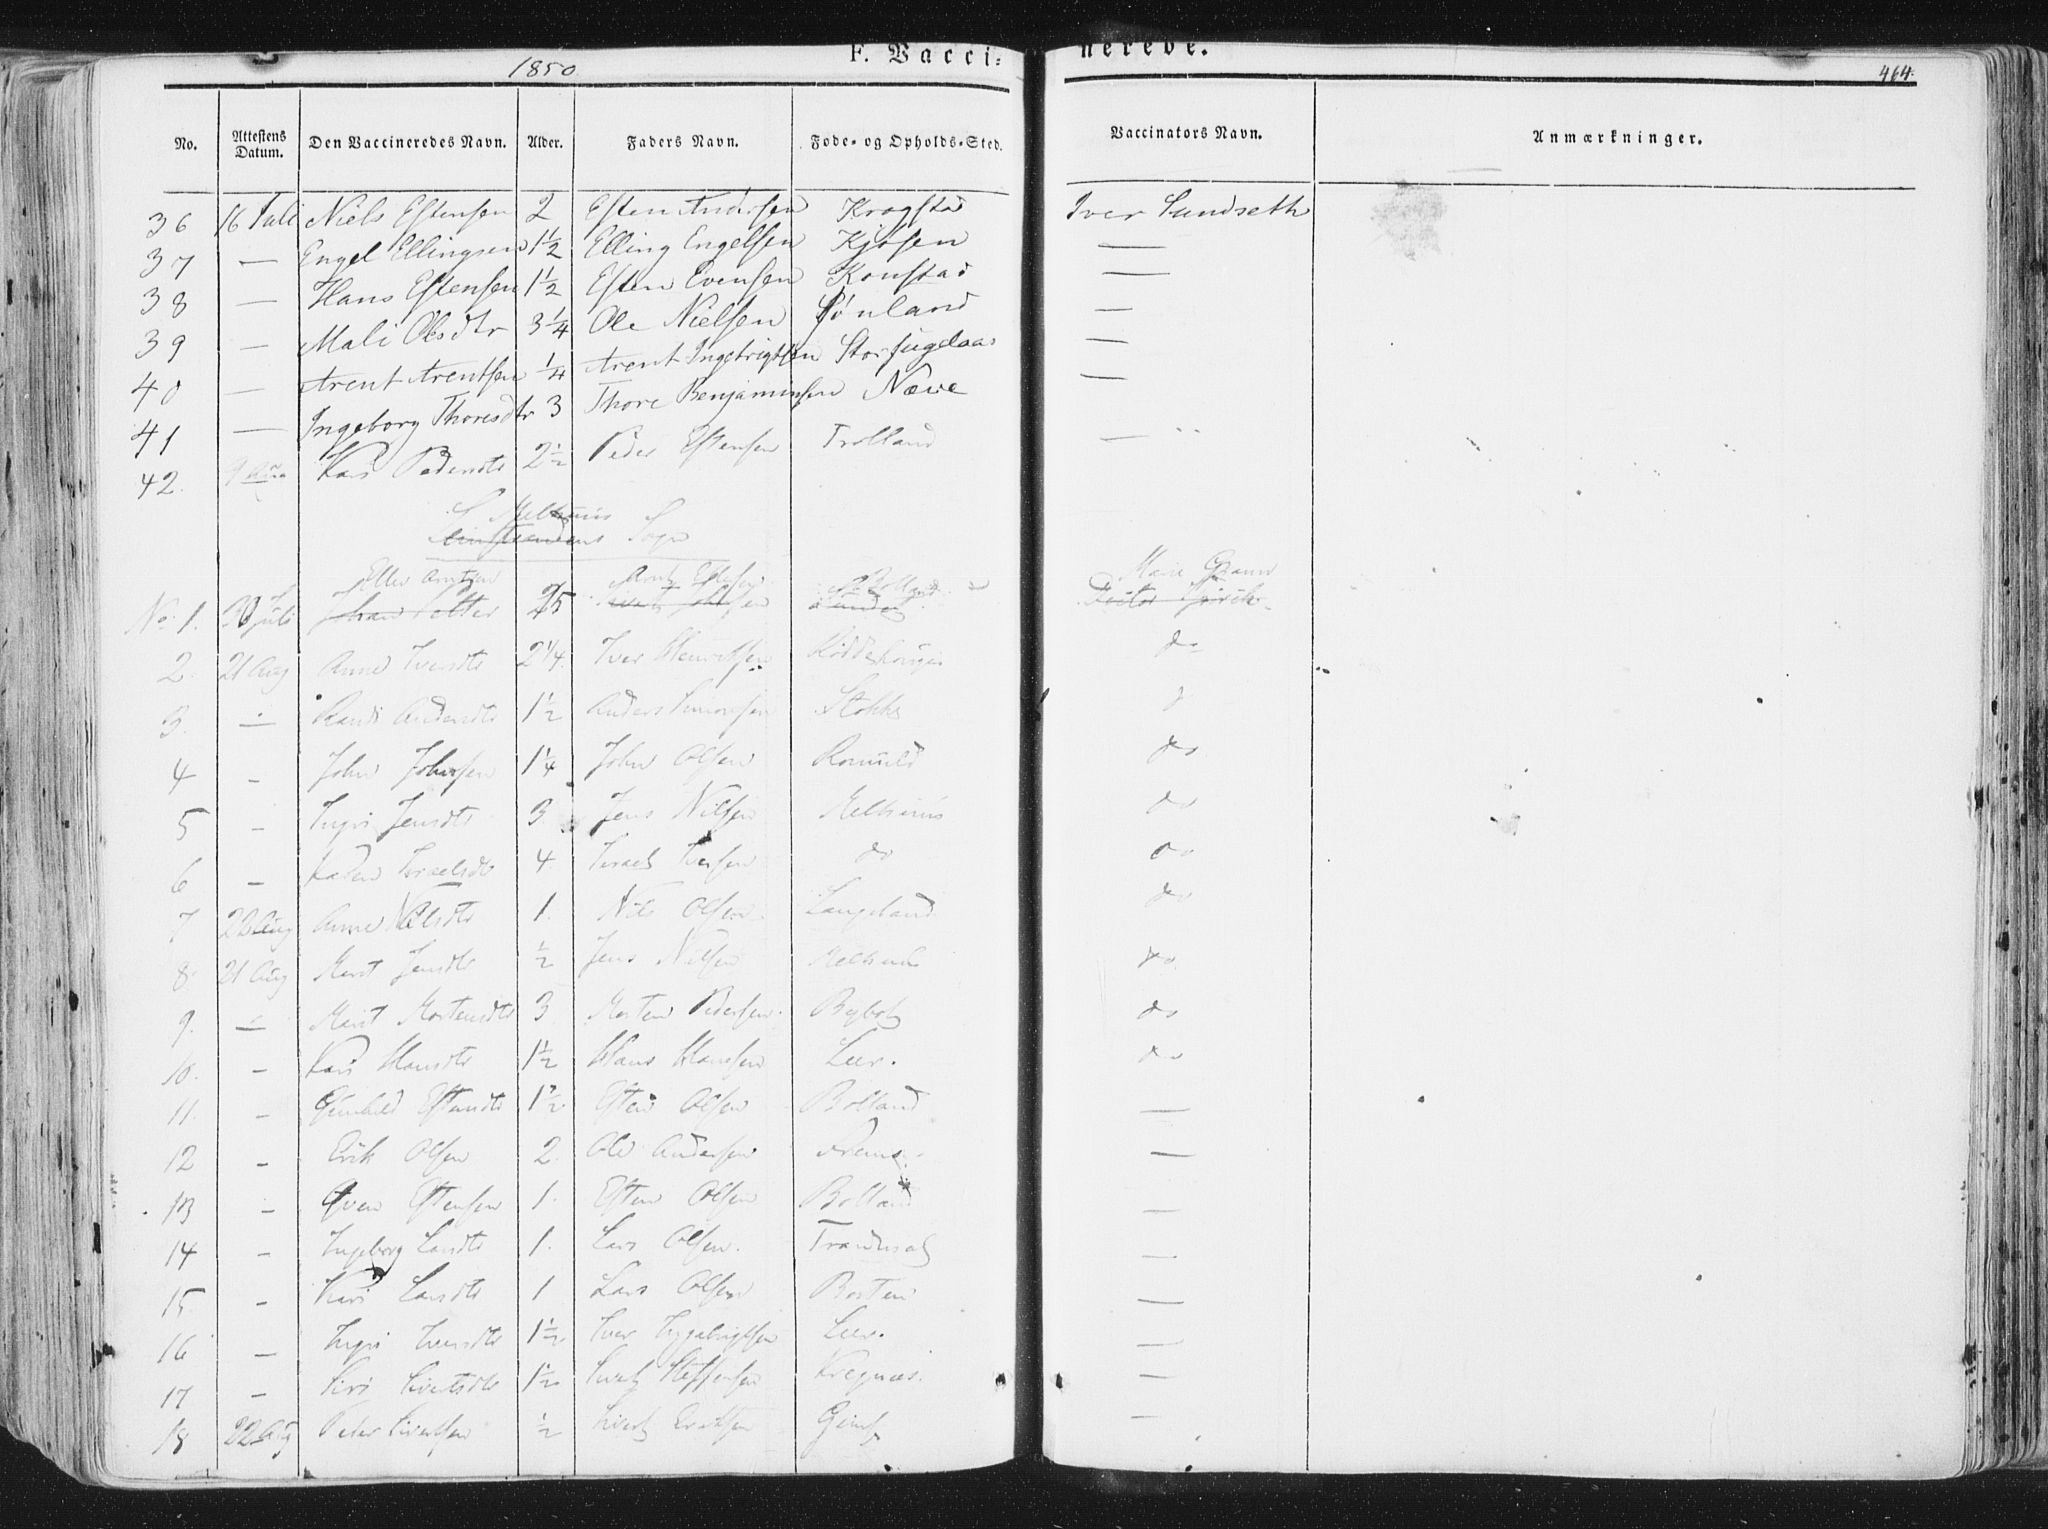 1850 F. Vacci= nerede. 464.
No. Attestens Datum. Den Vaccineredes Navn. Alder. Faders Navn. Føde= og Opholds=Sted. Vaccinators Navn. Anmærkninger.
36 16 Juli Niels Estensen 2 Esten Andersen Krogstad Iver Sundseth
37 — Engel Ellingsen 1½ Elling Engelsen Kjøsen —
38 — Hans Estensen 1½ Esten Evensen Konstad —
39 — Mali Olsdtr 3¼ Ole Nielsen Sønland —
40 — Arent Arentsen ¼ Arent Ingebrigtsen Storfugelaas —
41 — Ingeborg Thoresdtr 3 Thore Benjaminsen Næve —
42. 9 Aug Kari Pedersdtr 2½ Peder Estensen Trolland —
Melhuus
Sogn
Arnt Estensen
No. 1. 30 Juli
2. 21 Aug Anne Iversdtr 2¼. Iver Henriksen do
3. — Randi Andersdtr 1½ Anders Simonsen Stokke
4 - John Johnsen 1¼ John Olsen Romuld do
5 - Ingri Jensdtr 3. Jens Nilsen Melhuus do
6 - Karen Israelsdtr 4. Israel Iversen do do
7 22 Aug Anne Nilsdtr 1. Nils Olsen Langeland do
8. 21 Aug Marit Jensdtr ½ Jens Nilsen Melhuus do
9. — Marit Mortensdtr 3 Morten Pedersen. Bybol do
10. - Kari Hansdtr 1½ Hans Hansen Leer. do
11. - Gunhild Estensdtr 1½ Esten Olsen Bolland —
12 - Erik Olsen 2. Ole Andersen —
13 - Even Estensen 1. Esten Olsen Bolland —
14 - Ingeborg Larsdtr 1. Lars Olsen. —
15. - Kari Larsdtr 1 Lars Olsen Borten —
16 - Ingri Iversdtr 1½ Iver Ingebrigtsen Leer. —
17 - Siri Sivertsdtr 1½ Sivert Steffensen Kregnæs. —
18 22 Aug Peter Sivertsen ½ Sivert Eriksen Gimse —